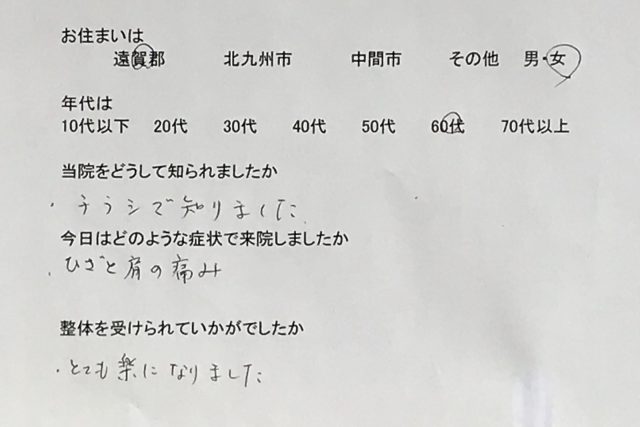 お住まいは
遠賀郡 北九州市 中間市 その他 男・女
年代は
10代以下 20代 30代 40代 50代 60代 70代以上
当院をどうして知られましたか
・チラシで知りました
今日はどのような症状で来院しましたか
・ひざと肩の痛み
整体を受けられていかがでしたか
・とても楽になりました